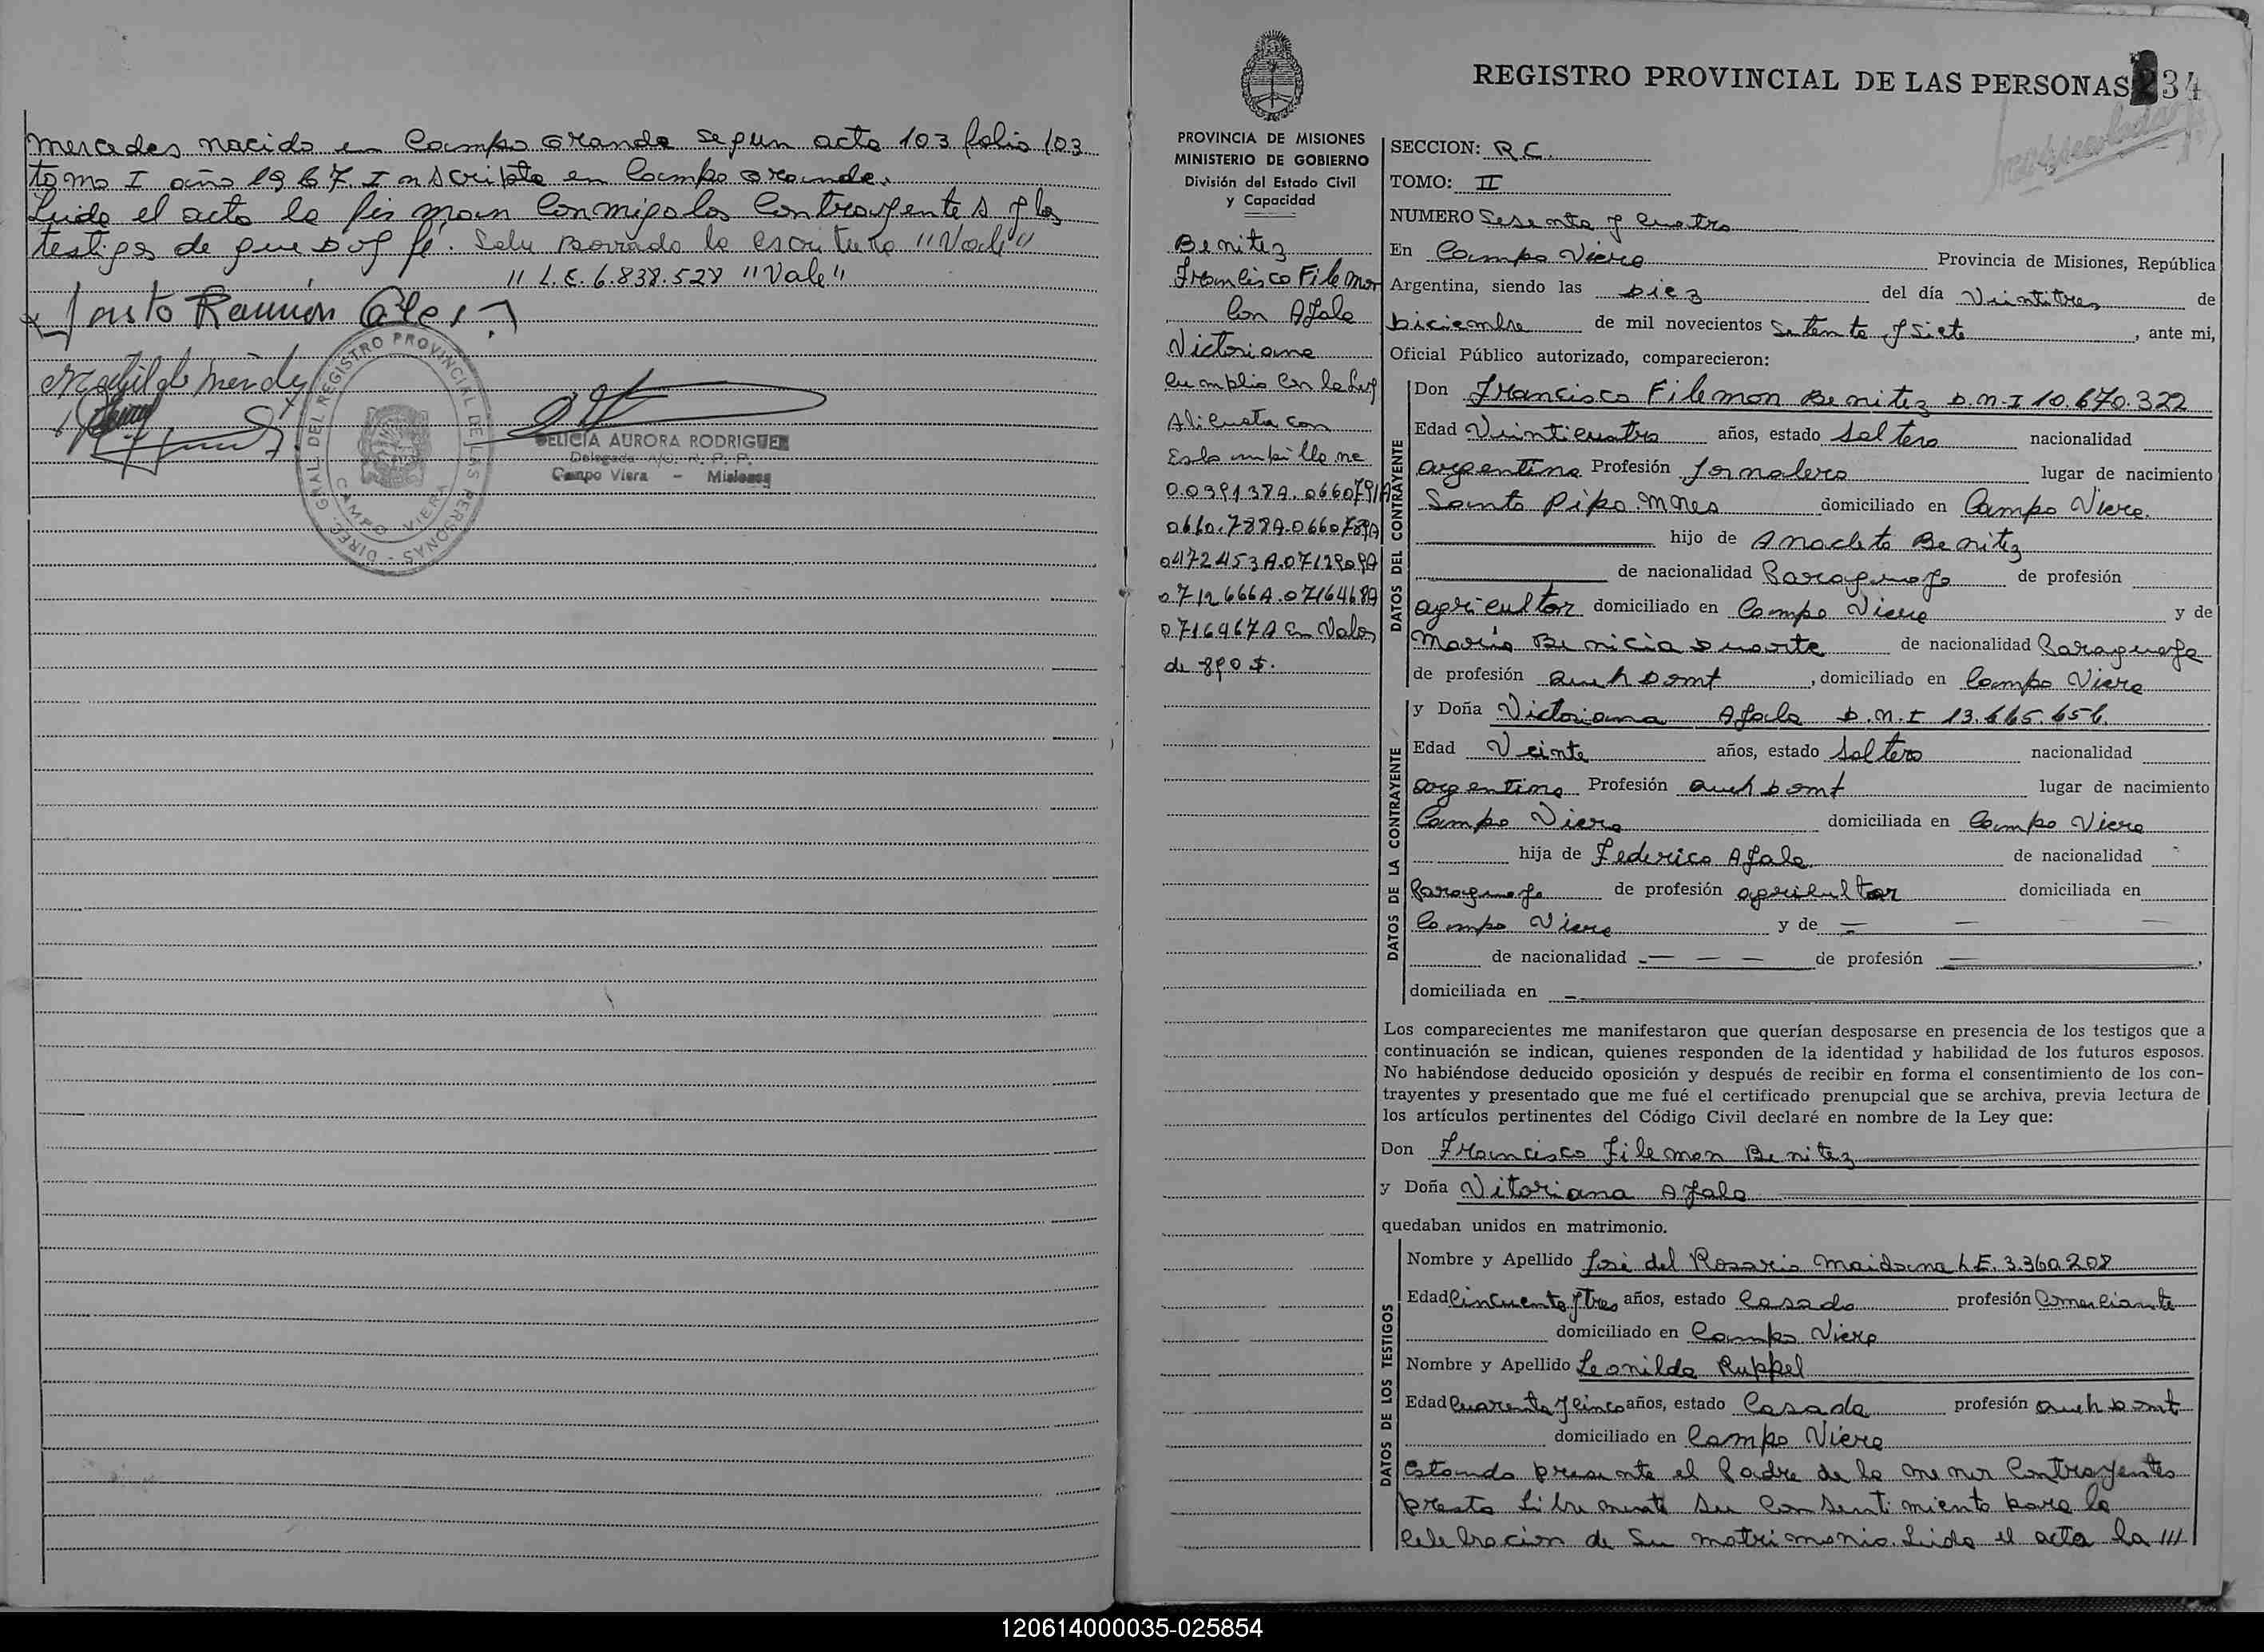 mercedes nacido en Campo Grande segun acta 103 folio 103
tomo I año 1967 Inscripta en Campo Grande.
Leida el acta la firman Conmigo los Contrayentes y los
testigos de que doy fé. Salu Borrado la escritura "Vale"
"L.E. 6.838.528 "Vale"
Justo Ramón
DIREC. GRAL. DEL REGISTRO PROVINCIAL DE LAS PERSONAS
CAMPO VIERA
DELICIA AURORA RODRIGUEZ
Delegada A/C. R. P. P.
Campo Viera - Misiones
REGISTRO PROVINCIAL DE LAS PERSONAS 234
PROVINCIA DE MISIONES
MINISTERIO DE GOBIERNO
División del Estado Civil
y Capacidad
Benitez
Francisco Filemon
Con Ayala
Victoriana
Cumplio Con la Ley
Alicuota con
Estampilla ne
0.0391387A. 0660791A
0660.788A-0660789A
0472453A.0712909A
0712666A.0716468A
0716467A En Valor
de 890 $.
SECCION: R C.
TOMO: II
NUMERO Sesenta y Cuatro
En Campo Viera Provincia de Misiones, República
Argentina, siendo las Diez del día Veintitres de
Diciembre de mil novecientos Setenta y Siete, ante mi,
Oficial Público autorizado, comparecieron:
DATOS DEL CONTRAYENTE
Don Francisco Filemon Benitez D.N.I 10.670.322
Edad Veinticuatro años, estado Soltero nacionalidad
argentina Profesión Jornalero lugar de nacimiento
Santo Pipo. Mnes domiciliado en Campo Viera.
hijo de Anacleto Benitez
de nacionalidad Paraguaya de profesión
agricultor domiciliado en Campo Viera y de
Maria Benicia Duarte de nacionalidad Paraguaya
de profesión queh Domt, domiciliado en Campo Viera
DATOS DE LA CONTRAYENTE
y Doña Victoriana Ayala D.N.I 13.665.656.
Edad Veinte años, estado Soltera nacionalidad
argentina Profesión queh Domt lugar de nacimiento
Campo Viera domiciliada en Campo Viera
hija de Federico Ayala de nacionalidad
Paraguaya de profesión agricultor domiciliada en
Campo Viera y de = — —
de nacionalidad - — — — de profesión —,
domiciliada en -
Los comparecientes me manifestaron que querían desposarse en presencia de los testigos que a
continuación se indican, quienes responden de la identidad y habilidad de los futuros esposos.
No habiéndose deducido oposición y después de recibir en forma el consentimiento de los con-
trayentes y presentado que me fué el certificado prenupcial que se archiva, previa lectura de
los artículos pertinentes del Código Civil declaré en nombre de la Ley que:
Don Francisco Filemon Benitez
y Doña Vitoriana Ayala
quedaban unidos en matrimonio.
DATOS DE LOS TESTIGOS
Nombre y Apellido José del Rosario Maidana L.E. 3.360.208
Edad Cincuenta y tres años, estado Casado profesión Comerciante
domiciliado en Campo Viera
Nombre y Apellido Leonilda Ruppel
Edad Cuarenta y Cinco años, estado Casada profesión queh Domt
domiciliado en Campo Viera
Estando presente el Padre de la menor Contrayentes
presta Libremente su Consentimiento para la
Celebracion de Su matrimonio. Leida el acta la ///
120614000035-025854